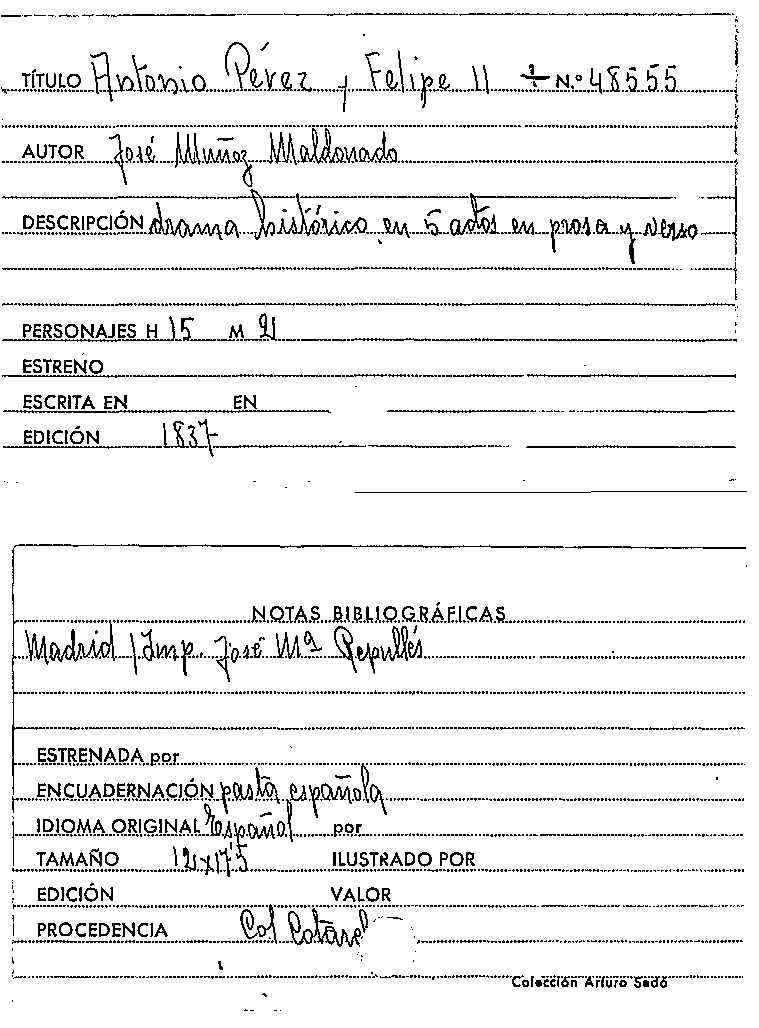 TÍTULO Antonio Pérez y Felipe II N.º 48555
AUTOR José Muñoz Maldonado
DESCRIPCIÓN drama histórico en 5 actos en prosa y verso
PERSONAJES H 15 M
ESTRENO
ESCRITA EN EN
EDICIÓN 1837
NOTAS BIBLIOGRÁFICAS
Madrid / Imp. José Mª Repullés
ESTRENADA por
ENCUADERNACIÓN pasta española
IDIOMA ORIGINAL Español por
TAMAÑO ILUSTRADO POR
EDICIÓN VALOR
PROCEDENCIA Col
Colección Arturo Sedó